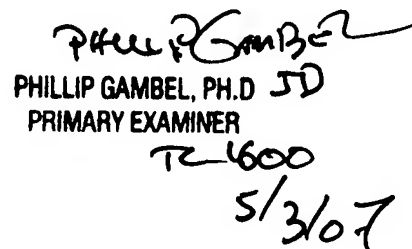 PHILLIP GAMBEL
PHILLIP GAMBEL, PH.D JD
PRIMARY EXAMINER
TC 1600
5/3/07